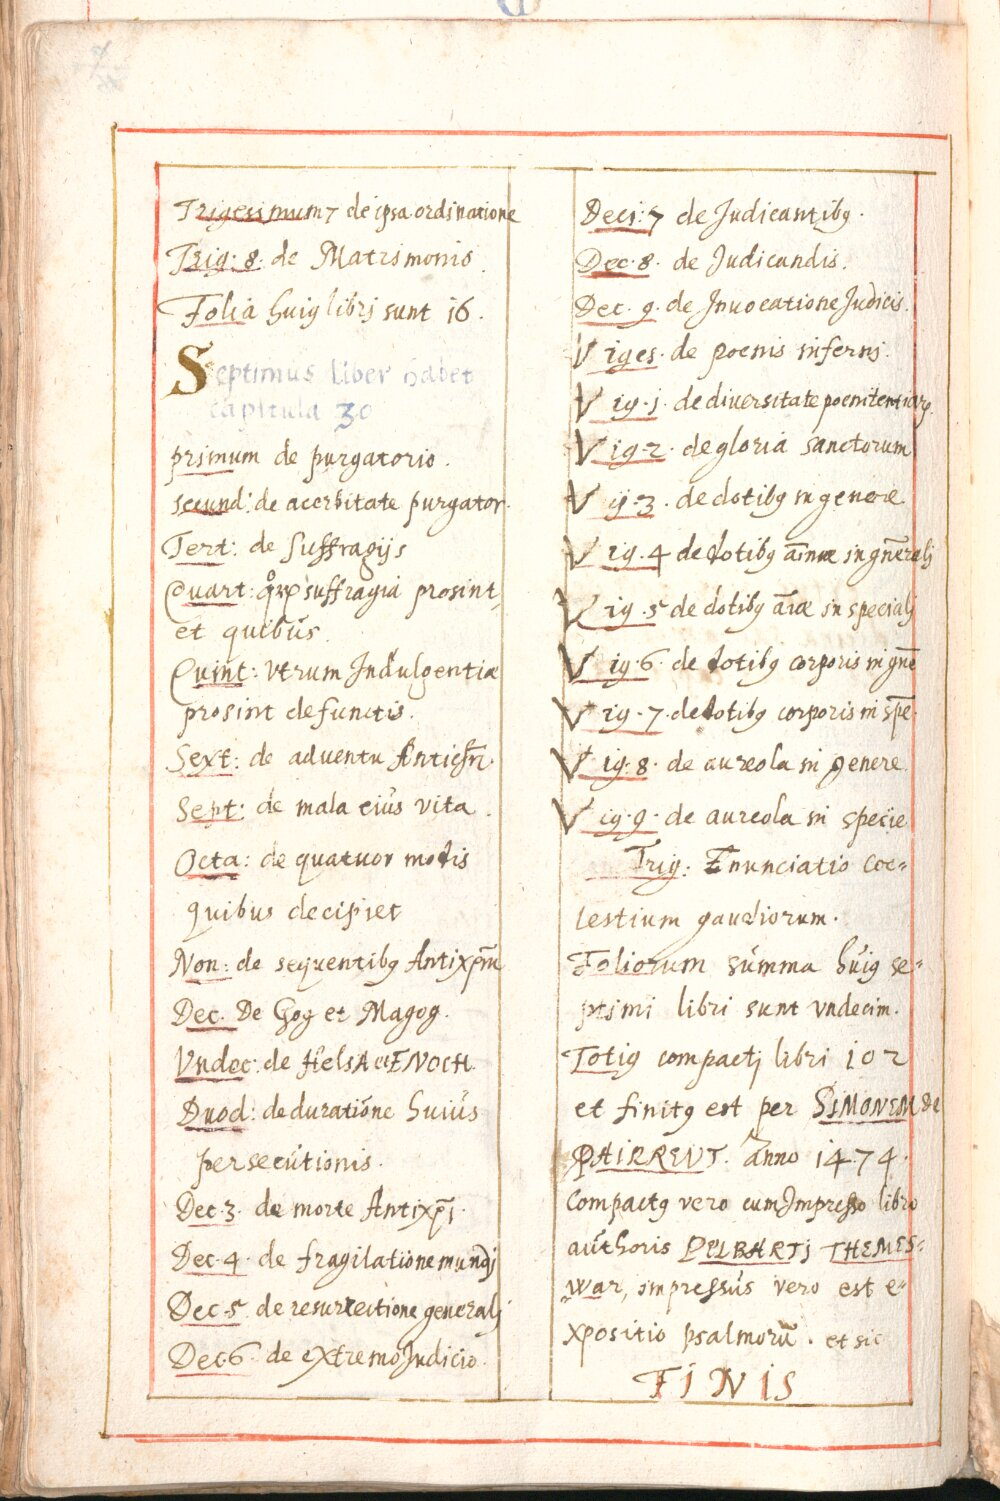 Trigesimum 7 de ipsa ordinatione
Trig: 8. de Matrimonio.
Folia huiq libri sunt 16.
Septimus liber habet
capitula 30
primum de purgatorio.
secund: de acerbitate purgator.
Tert: de suffragijs
Quart: suffragia prosint,
et quibus.
Quint: vtrum Indulgentiæ
prosint defunctis.
Sext: de aduentu Antichri.
Sept: de mala eiùs vita.
Octa: de quatuor modis
quibus decipiet
Non: de sequentibq Antixpm
Dec. De Gog et Magog.
Vndec: de HelsA et ENOCH.
Duod: de duratione huiùs
persecùtionis.
Dec. 3. de morte Antixpi.
Dec. 4. de fragilatione mundj
Dec. 5. de resurrectione generalj
Dec. 6. de extremo Judicio.
Deci: 7 de Judicantibq.
Dec. 8. de Judicandis.
Dec. 9. de Inuocatione Judicis.
Viges. de poenis inferni.
Vig. j. de diuersitate poenitentiarq.
Vig. 2. de gloria sanctorum
Vig. 3. de dotibq in genere
Vig. 4 de dotibq āīmæ in gn̄eralj
Vig. 5 de dotibq āīæ in specialj
Vig. 6. de dotibq corporis in gnē
Vig. 7. de dotibq corporis in spē.
Vig. 8. de aureola in genere
Vig. 9. de aureola in specie
Trig: Enunciatio coe-
lestium gaudiorum.
Foliorum sùmma hùiq se-
ptimi libri sunt vndecim.
Totiq compactj libri 102
et finitq est per SiMONEM de
PAIRREUT. anno 1474.
Compactq vero cum Impresso libro
aùthoris PELBARTj THEMES-
war, impressùs vero est e-
xpositio psalmorū. et sic
FINIS